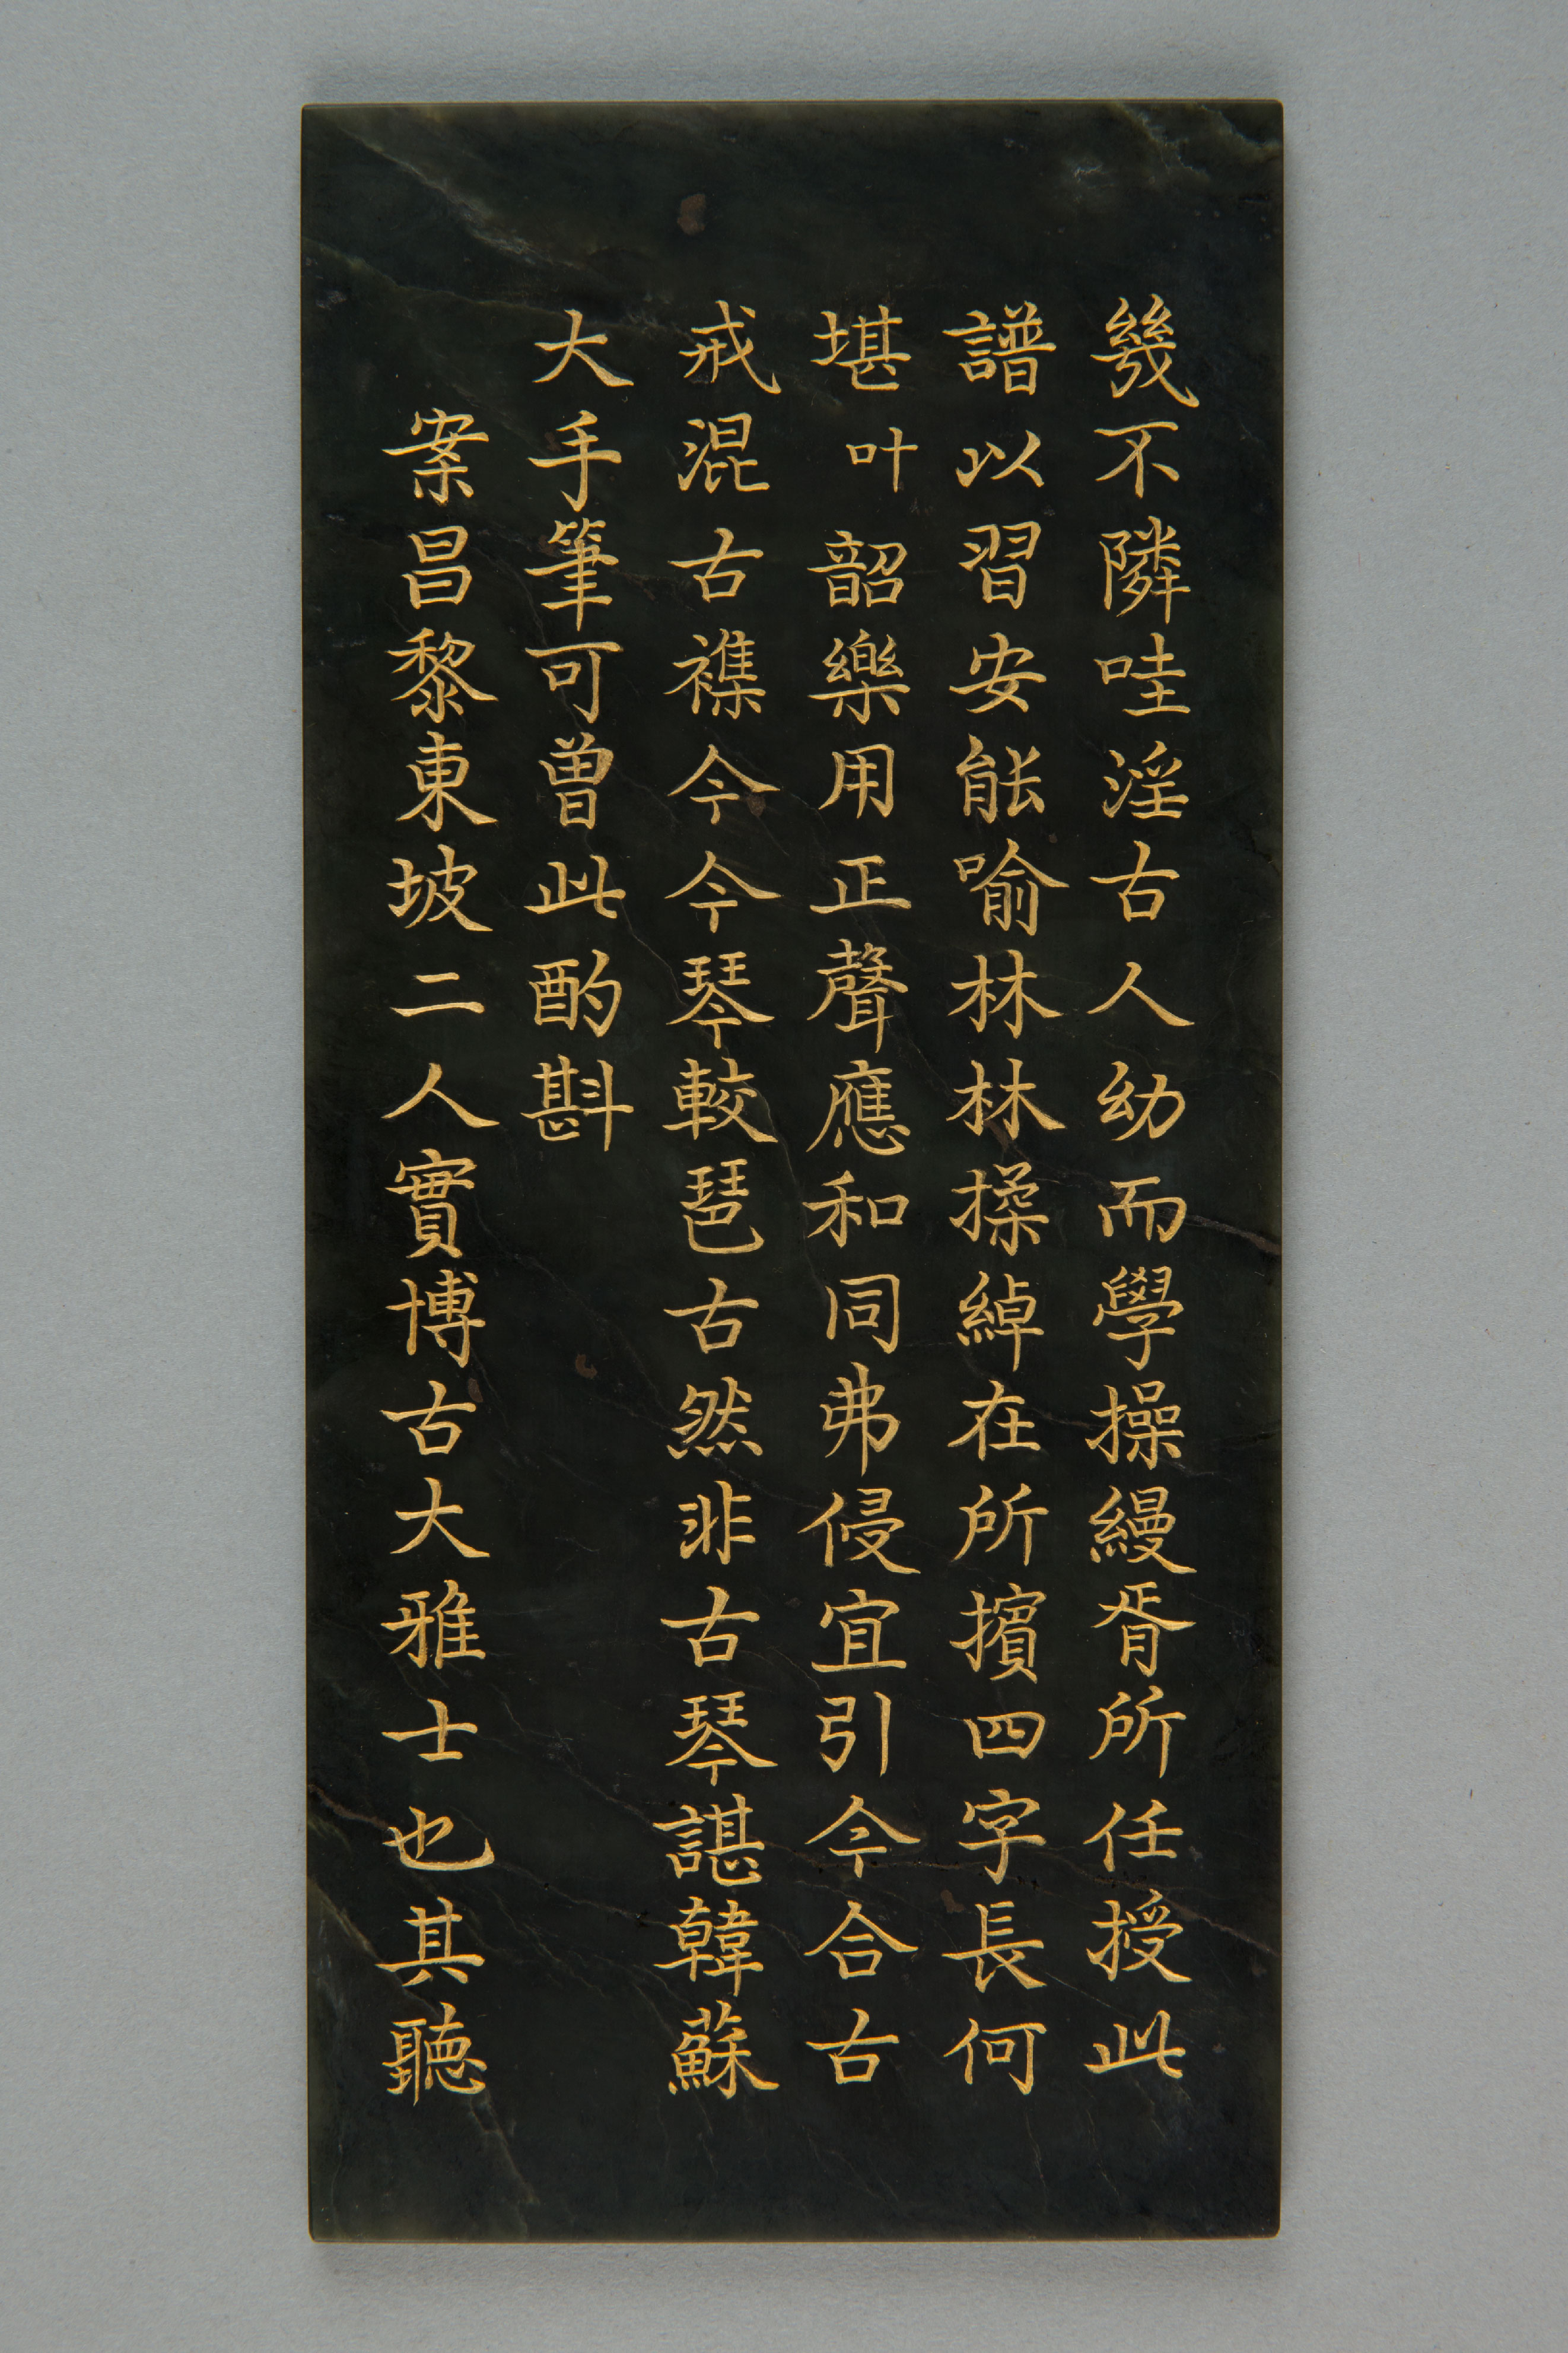 幾不隣哇淫古人幼而學操縵胥所任授此
譜以習安能喻林林揉綽在所擯四字長何
堪叶韶樂用正聲應和同弗侵宜引今合古
戒混古襍今今琴較琶古然非古琴諶韓蘇
大手筆可曽此酌斟
案昌黎東坡二人實博古大雅士也其聽